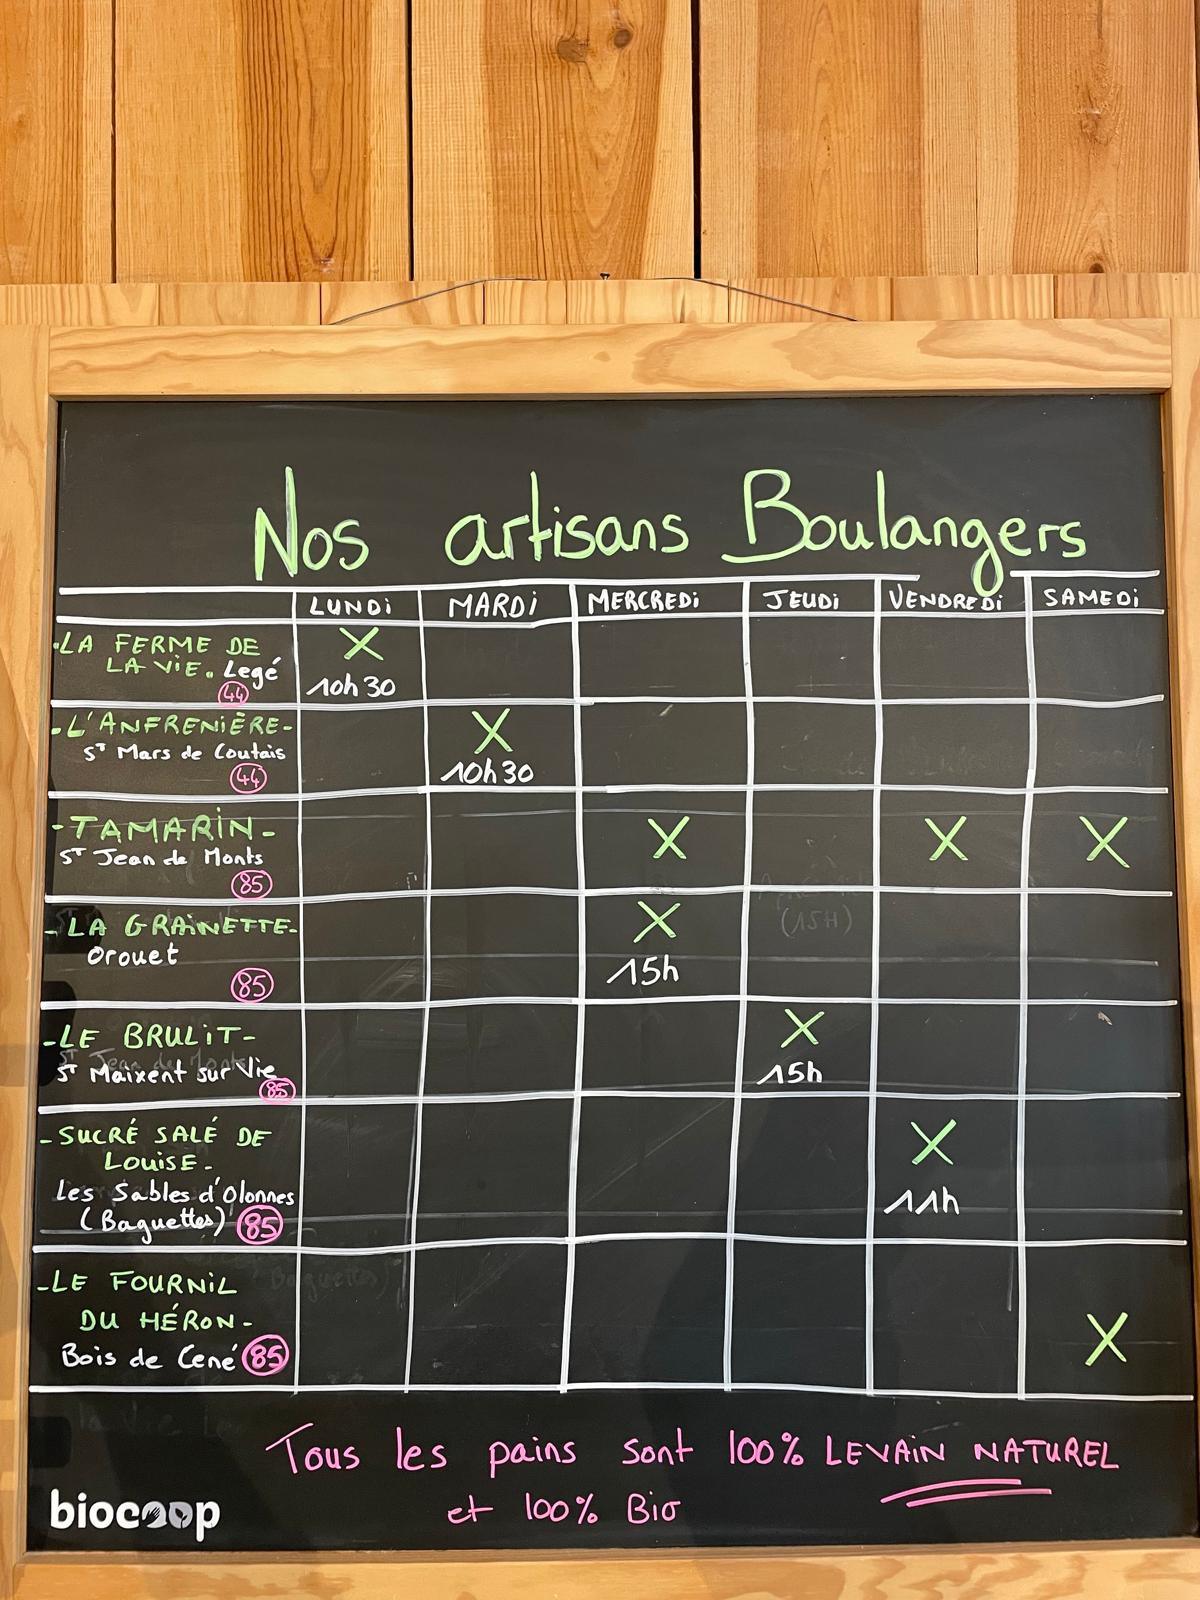 Nos artisans Boulangers
LUNDi MARDi MERCREDi JEUDi VENDREDi SAMEDi
-LA FERME DE
LA ViE. Legé
44
X
10h30
-L'ANFRENIÈRE-
ST Mars de Coutais
44
X
10h30
-TAMARiN-
ST Jean de Monts
85
X X X
-LA GRAiNETTE-
Orouet
85
X
15h
-LE BRULiT-
ST Maixent sur Vie
85
X
15h
-SUCRÉ SALÉ DE
LOUiSE-
Les Sables d'Olonnes
(Baguettes) 85
X
11h
-LE FOURNiL
DU HÉRON-
Bois de Cené 85
X
Tous les pains sont 100% LEVAiN NATUREL
et 100% Bio
biocoop